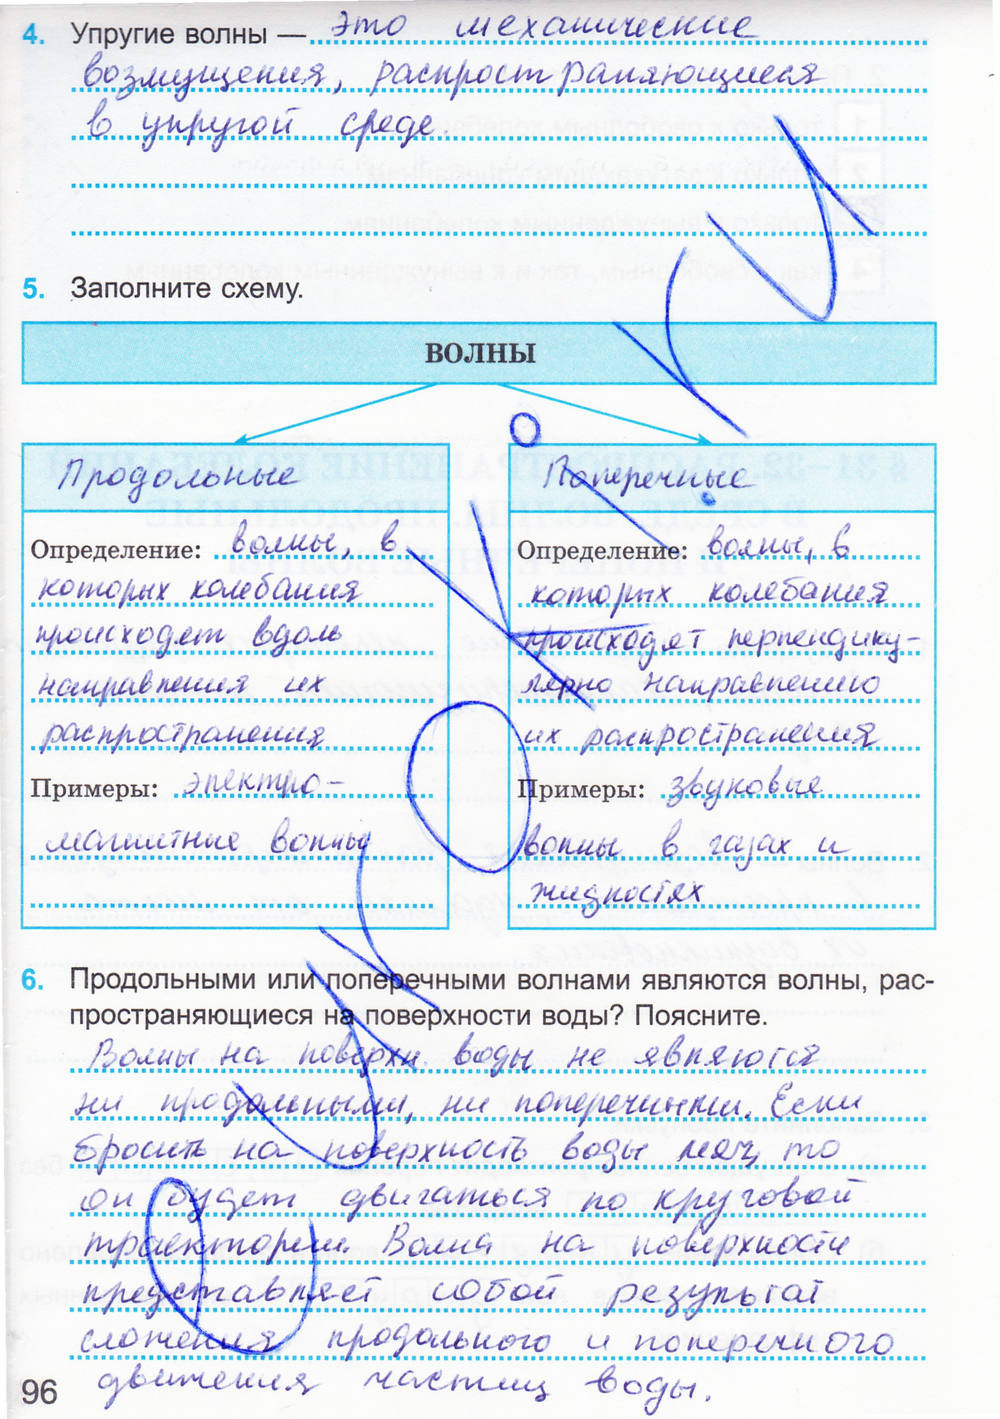 4. Упругие волны — это механические
возмущения, распространяющиеся
в упругой среде.
5. Заполните схему.
ВОЛНЫ
Продольные
Определение: волны, в
которых колебания
происходят вдоль
направления их
распространения
Примеры: электро-
магнитные волны
Поперечные
Определение: волны, в
которых колебания
происходят перпендику-
лярно направлению
их распространения
Примеры: звуковые
волны в газах и
жидностях
6. Продольными или поперечными волнами являются волны, рас-
пространяющиеся на поверхности воды? Поясните.
Волны на поверхн. воды не являются
ни продольными, ни поперечными. Если
бросить на поверхность воды мяч, то
он будет двигаться по круговой
траектории. Волна на поверхности
представляет собой результат
сложения продольного и поперечного
движения частиц воды.
96